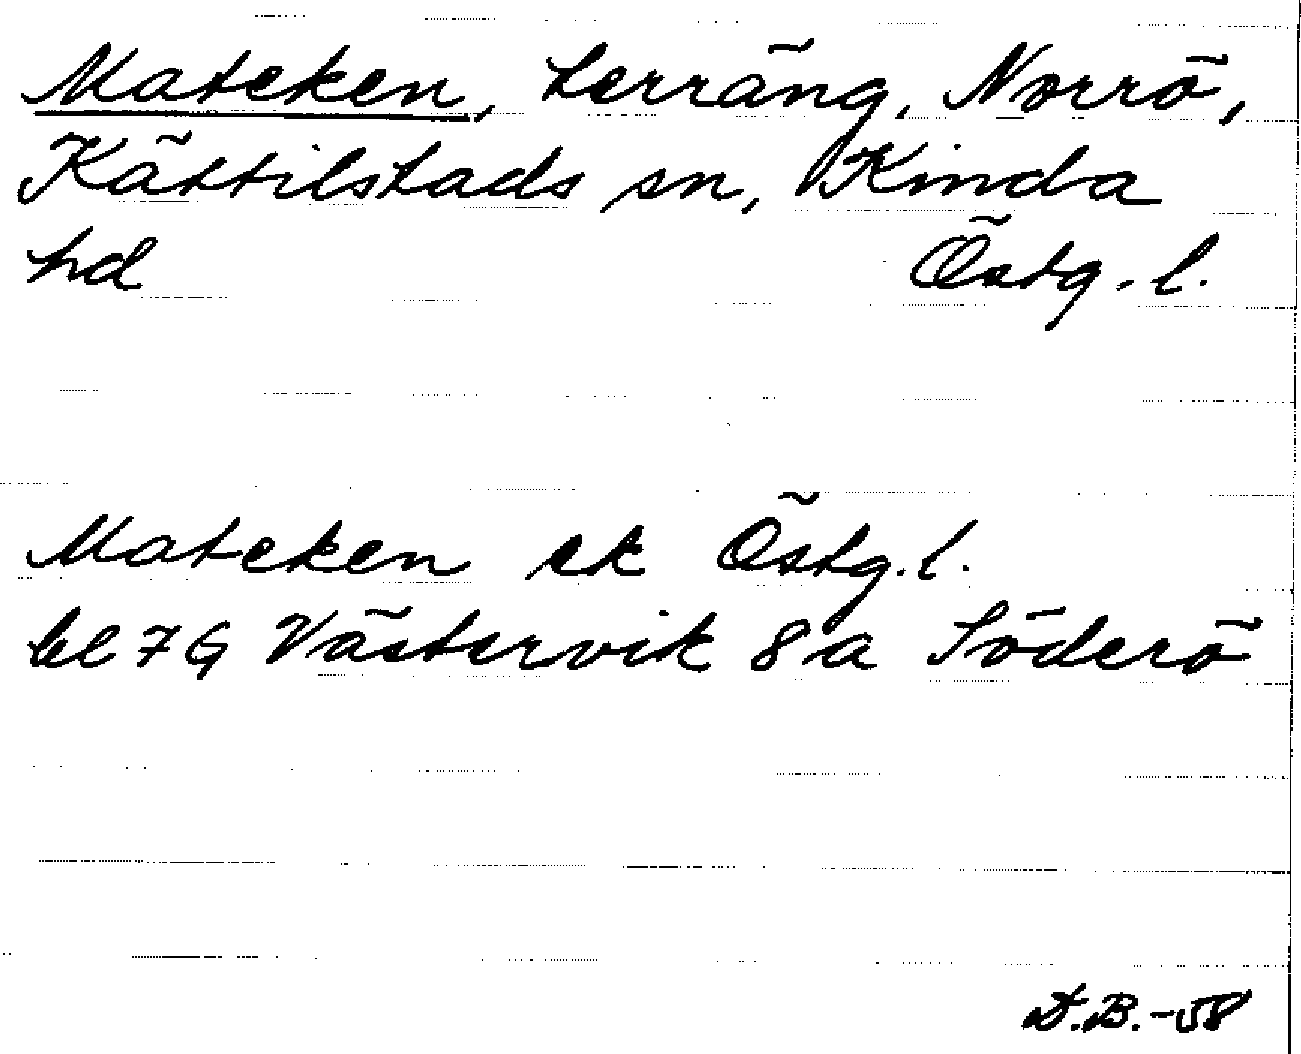 Mateken, terräng, Norrö,
Kättilstads sn, Kinda
hd Östg. l.
Mateken ek Östg. l.
bl 7G Västervik 8a Söderö
D.B.-58